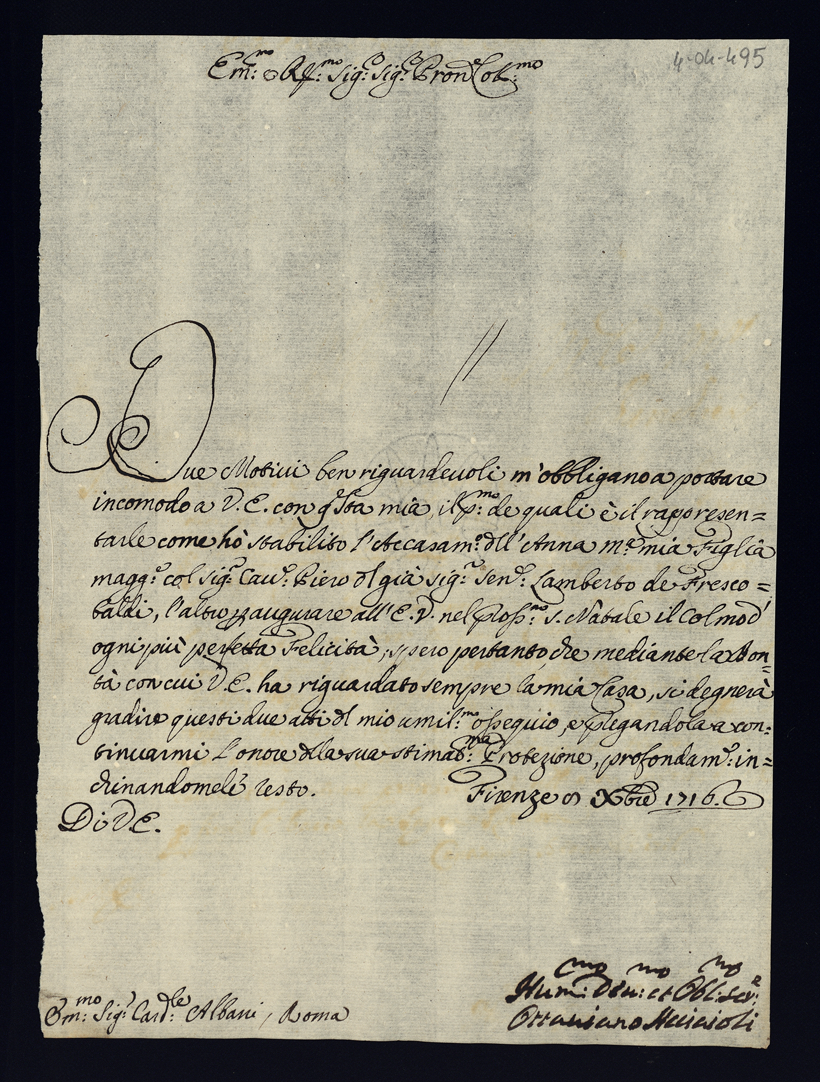 4-04-495
Em:mo e Rs:mo Sig:e Sig:e Pron Col:mo
Due Motivi ben riguardevoli m'obbligano a portare
incomodo a V.E. con q'sta mia, il p:mo de quali è il rappresen=
tarle come hò stabilito l'Accasam:o dll'Anna m:a mia Figlia
magg:e col Sig:r Cau:r Piero dl già Sig:r Sen:r Lamberto de Fresco=
baldi, l'altro p augurare all'E.V. nel pross:mo S. Natale il Colmo d'
ogni più perfetta Felicità, spero pertanto che mediante la Bon=
tà con cui V.E. ha riguardato sempre la mia Casa, si degnerà
gradire questi due atti dl mio umil:mo ossequio, e pregandola a con=
tinuarmi l'onore dlla sua stimat:ma Protezione, profondam:e in=
chinandomeli resto. Firenze 8 Xbre 1716.
Di V.E.
Em:mo Sig:r Card:le Albani, Roma
Hum:mo Deu:mo et Obl:mo Ser:e
Ottauiano Acciaioli